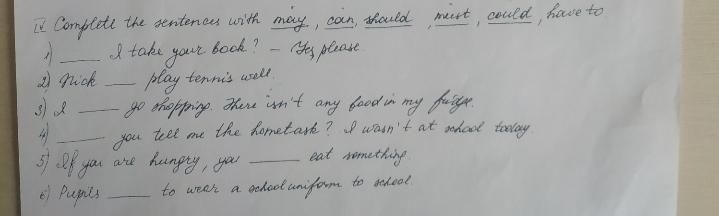 IV Complete the sentences with may, can, should, must, could, have to
1) ___ I take your book? – Yes, please.
2) Nick ___ play tennis well.
3) I ___ go shopping. There isn't any food in my fridge.
4) ___ you tell me the hometask? I wasn't at school today.
5) If you are hungry, you ___ eat something.
6) Pupils ___ to wear a school uniform to school.